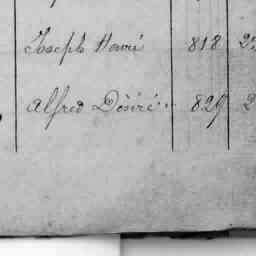 Joseph Henri 818
Alfred Désiré 829